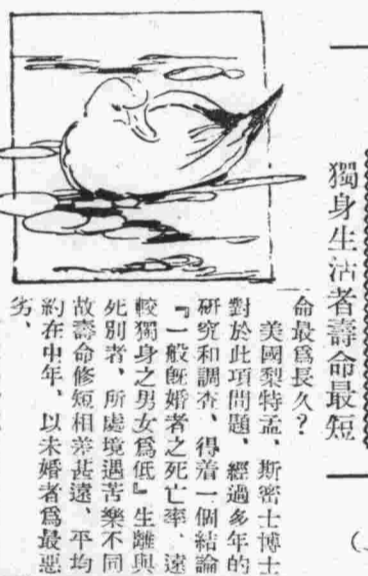 獨身生活者壽命最短
命最爲長久？
美國梨特孟、斯密士博士
對於此項問題、經過多年的
研究和調查、得着一個結論
『一般旣婚者之死亡率、遠
較獨身之男女爲低』生離與
死別者、所處境遇苦樂不同
故壽命修短相差甚遠、平均
約在中年、以未婚者爲最惡
劣、